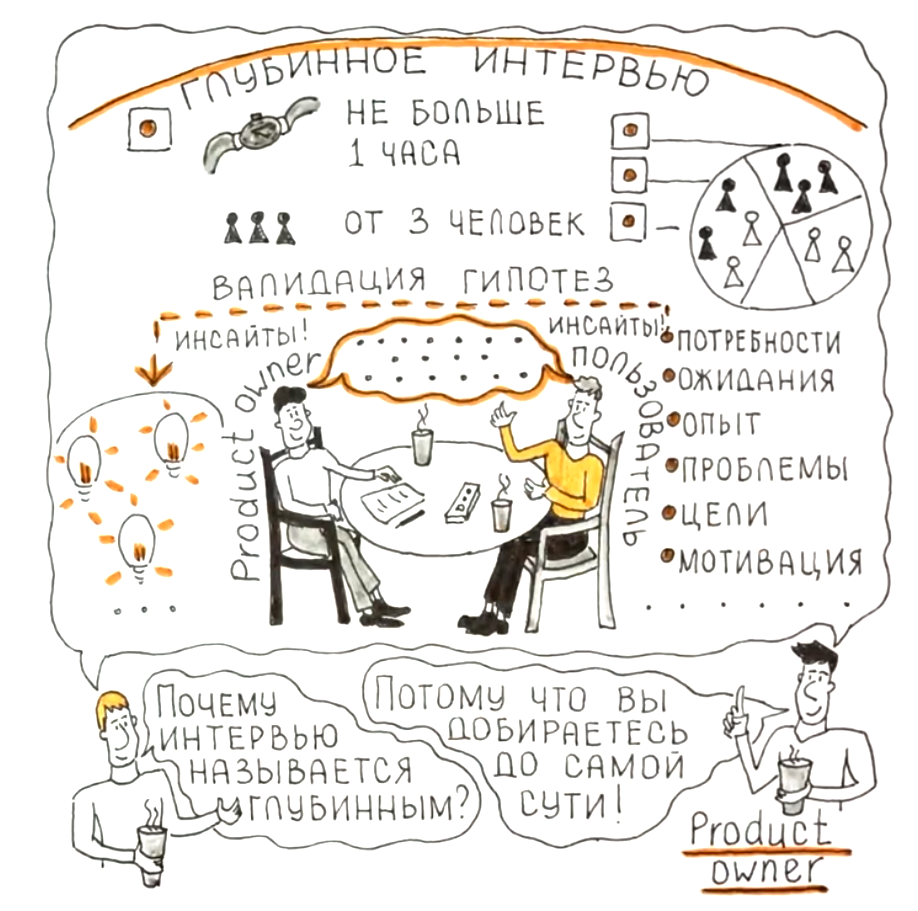 ГЛУБИННОЕ ИНТЕРВЬЮ
НЕ БОЛЬШЕ
1 ЧАСА
ОТ 3 ЧЕЛОВЕК
ВАЛИДАЦИЯ ГИПОТЕЗ
ИНСАЙТЫ!
ИНСАЙТЫ!
Product owner
ПОЛЬЗОВАТЕЛЬ
ПОТРЕБНОСТИ
ОЖИДАНИЯ
ОПЫТ
ПРОБЛЕМЫ
ЦЕЛИ
МОТИВАЦИЯ
ПОЧЕМУ
ИНТЕРВЬЮ
НАЗЫВАЕТСЯ
ГЛУБИННЫМ?
ПОТОМУ ЧТО ВЫ
ДОБИРАЕТЕСЬ
ДО САМОЙ
СУТИ!
Product
owner